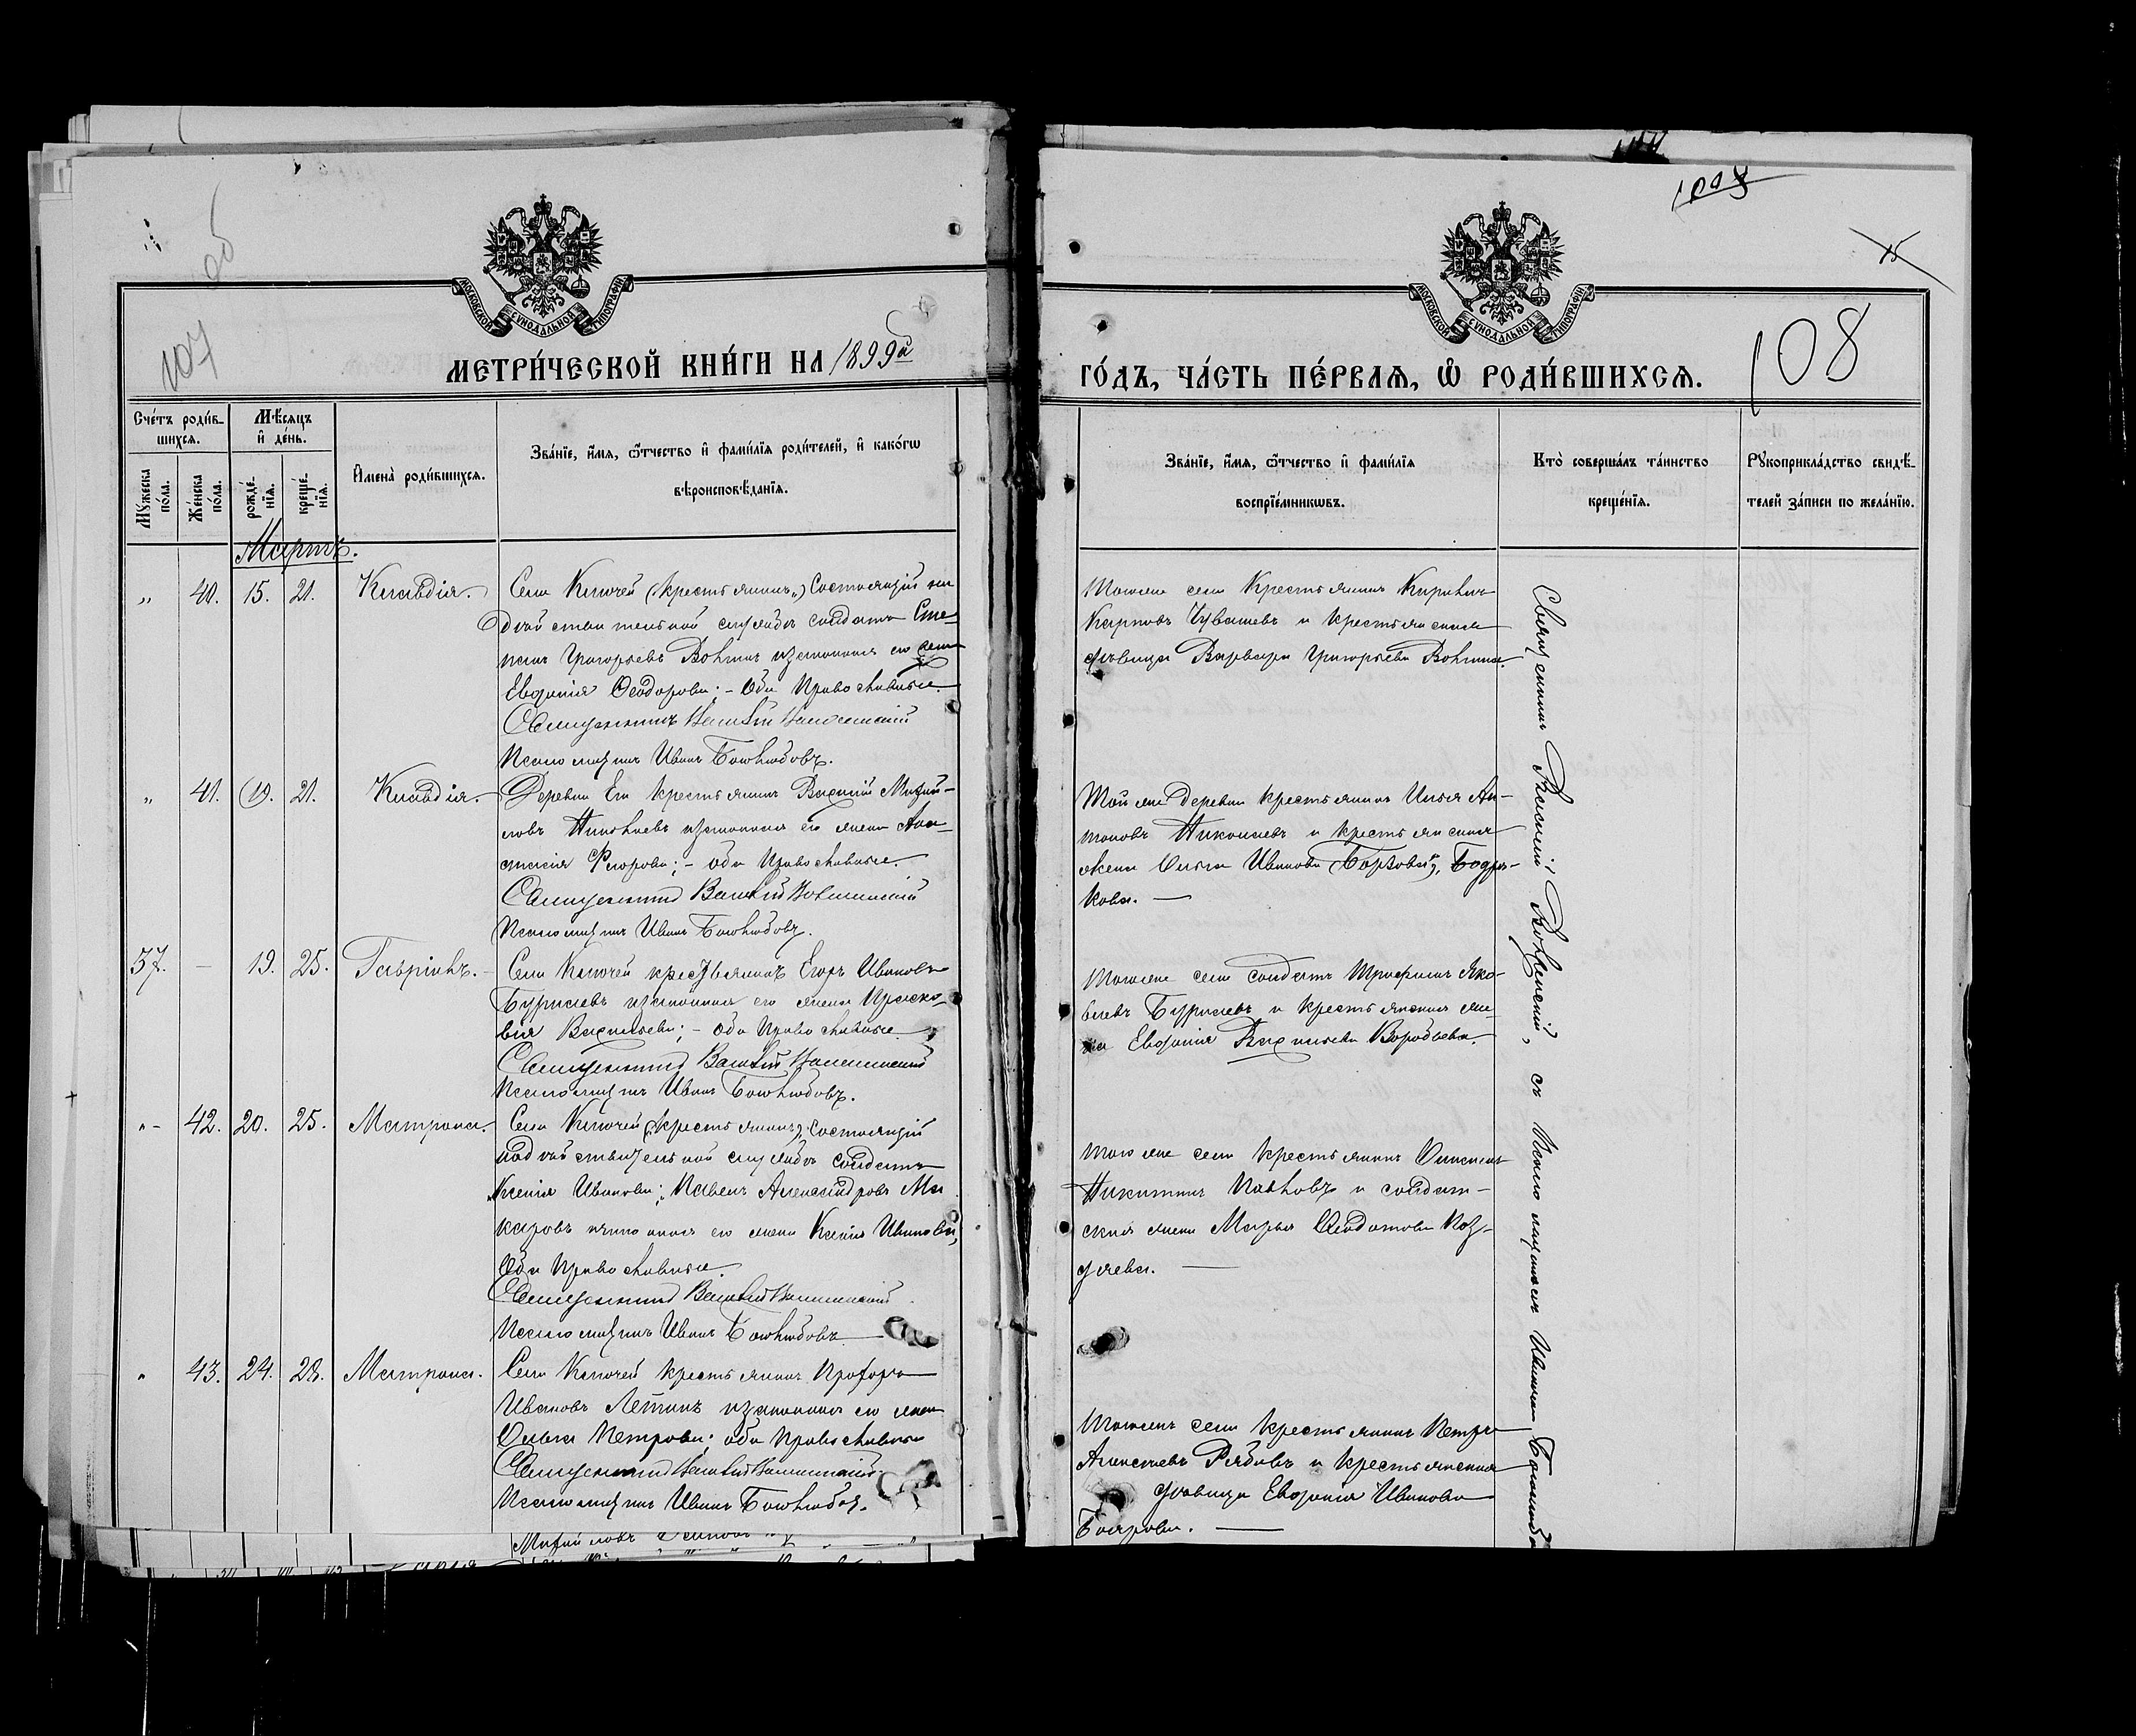 107
об
МОСКОВСКОЙ СУНОДАЛЬНОЙ ТИПОГРАФІИ
МЕТРИ́ЧЕСКОЙ КНИ́ГИ НА 1899й
Сче́тъ роди́в-
шихся.
Мѣсяцъ
и де́нь.
Мꙋжеска
по́ла.
Же́нска
по́ла.
рожде́-
нїѧ.
креще́-
нїѧ.
Имена̀ роди́вшихсѧ.
Зва́нїе, и́мѧ, ѻ҆́тчество и҆ фами́лїѧ роди́телей, и҆ како́гѡ
вѣроисповѣ́данїѧ.
Мартъ.
„ 40. 15. 21. Клавдія.
Села Ключей (крестьянинъ) Состоящій на
дѣйствительной службѣ солдатъ Сте-
панъ Григорьевъ Волгинъ и законная его жена
Евдокія Ѳеодорова; - оба Православные.
Священникъ Василій
Псаломщикъ Иванъ Боголюбовъ.
„ 41. 19. 21. Клавдія.
Деревни Еги крестьянинъ Василій Михай-
ловъ Николаевъ и законная его жена Ана-
стасія Флорова; - оба Православные.
Священникъ Василій
Псаломщикъ Иванъ Боголюбовъ.
37. — 19. 25. Гавріилъ.
Села Ключей крестьянинъ Егоръ Ивановъ
Бурмаевъ и законная его жена Праско-
вія Васильева; - оба Православные
Священникъ Василій
Псаломщикъ Иванъ Боголюбовъ.
„ 42. 20. 25. Матрона.
Села Ключей (крестьянинъ) состоящій
на дѣйствительной службѣ солдатъ
Ксенія Иванова; Павелъ Александровъ Ма
каровъ и законная его жена Ксенія Иванова,
Оба Православные.
Священникъ Василій
Псаломщикъ Иванъ Боголюбовъ
„ 43. 24. 28. Матрона.
Села Ключей крестьянинъ Прохоръ
Ивановъ Лётинъ и законная его жена
Ольга Петрова; оба Православные
Священникъ Василій
Псаломщикъ Иванъ Боголюбов.
Михайловъ
1008
15
108
МОСКОВСКОЙ СУНОДАЛЬНОЙ ТИПОГРАФІИ
ГО́ДЪ, ЧА́СТЬ ПЕ́РВАѦ, Ѡ҆ РОДИ́ВШИХСѦ.
Зва́нїе, и́мѧ, ѻ҆́тчество и҆ фами́лїѧ
воспрїе́мникѡвъ.
Кто̀ соверша́лъ та́инство
креще́нїѧ.
Рꙋкоприкла́дство свидѣ́-
телей за́писи по жела́нїю.
Тогоже села Крестьянинъ Кириллъ
Карповъ Чувашевъ и крестьянская
дѣвица Варвара Григорьева Волгина.
Той же деревни крестьянинъ Илья Ан-
тоновъ Николаевъ и крестьянская
жена Ольга Иванова
кова. —
Тогоже села солдатъ Трофимъ Яко-
влевъ Бурмаевъ и крестьянская же-
на Евдокія Васильева Воробьева.
Тогоже села крестьянинъ
Никитинъ Павловъ и солдат-
ская жена Марья Ѳеодотова Поз-
дяева. —
Тогожъ села крестьянинъ Петръ
Алексѣевъ Рябовъ и крестьянская
дѣвица Евдокія Иванова
Боярова. —
Священникъ Василій, съ Псаломщикомъ Иваномъ